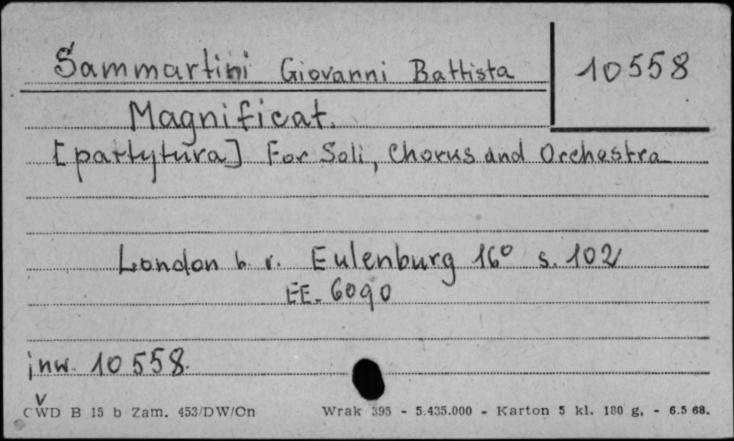 Sammartini Giovanni Battista
10558
Magnificat.
[partytura] For Soli, Chorus and Orchestra
London b. r. Eulenburg 16° s. 102
EE. 6090
inw. 10558.
CWD B 15 b Zam. 453/DW/On Wrak 395 - 5.435.000 - Karton 5 kl. 180 g. - 6.5 68.